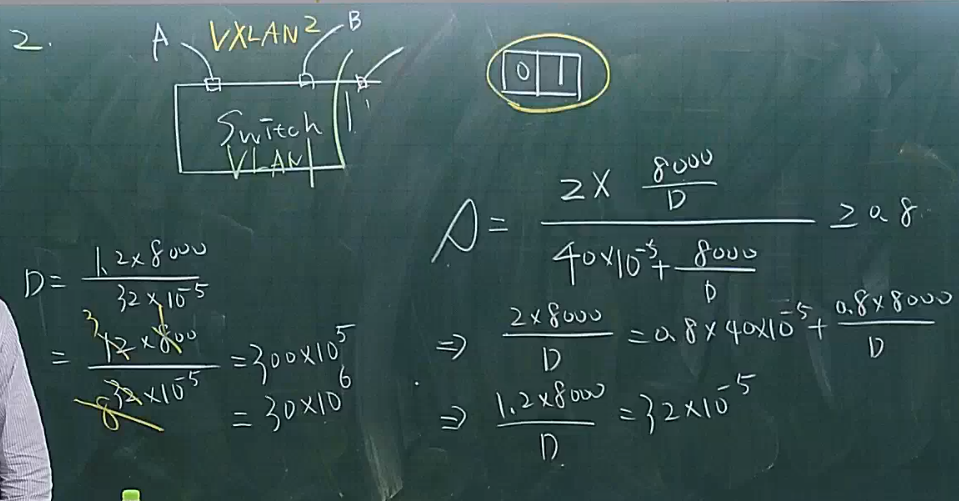 2.
A VXLAN2 B
Switch
VLAN1
0 1
ρ = (2 × 8000/D) / (40×10^-5 + 8000/D) ≥ 0.8
⇒ 2×8000/D = 0.8×40×10^-5 + 0.8×8000/D
⇒ 1.2×8000/D = 32×10^-5
D = 1.2×8000 / 32×10^-5
= 12×800 / 32×10^-5 = 300×10^5
3 1
8
= 30×10^6